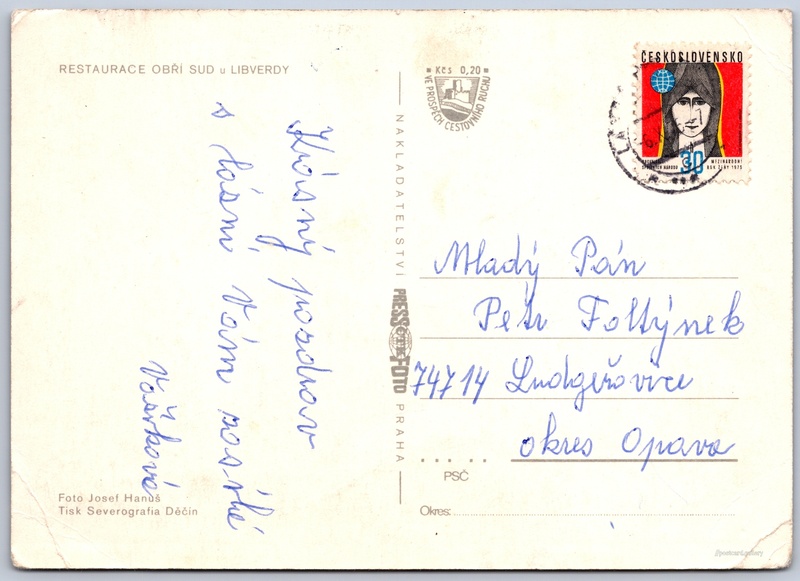 RESTAURACE OBŘÍ SUD u LIBVERDY
Krásný pozdrav
s lázní Vám
Vašíková
Foto Josef Hanuš
Tisk Severografia Děčín
NAKLADATELSTVÍ PRESSFOTO PRAHA
ČTK
Kčs 0,20
VE PROSPĚCH CESTOVNÍHO RUCHU
ČESKOSLOVENSKO
30
MEZINÁRODNÍ
ROK ŽENY 1975
Mladý Pán
Petr Foltýnek
74714 Ludgeřovice
okres Opava
PSČ
Okres: